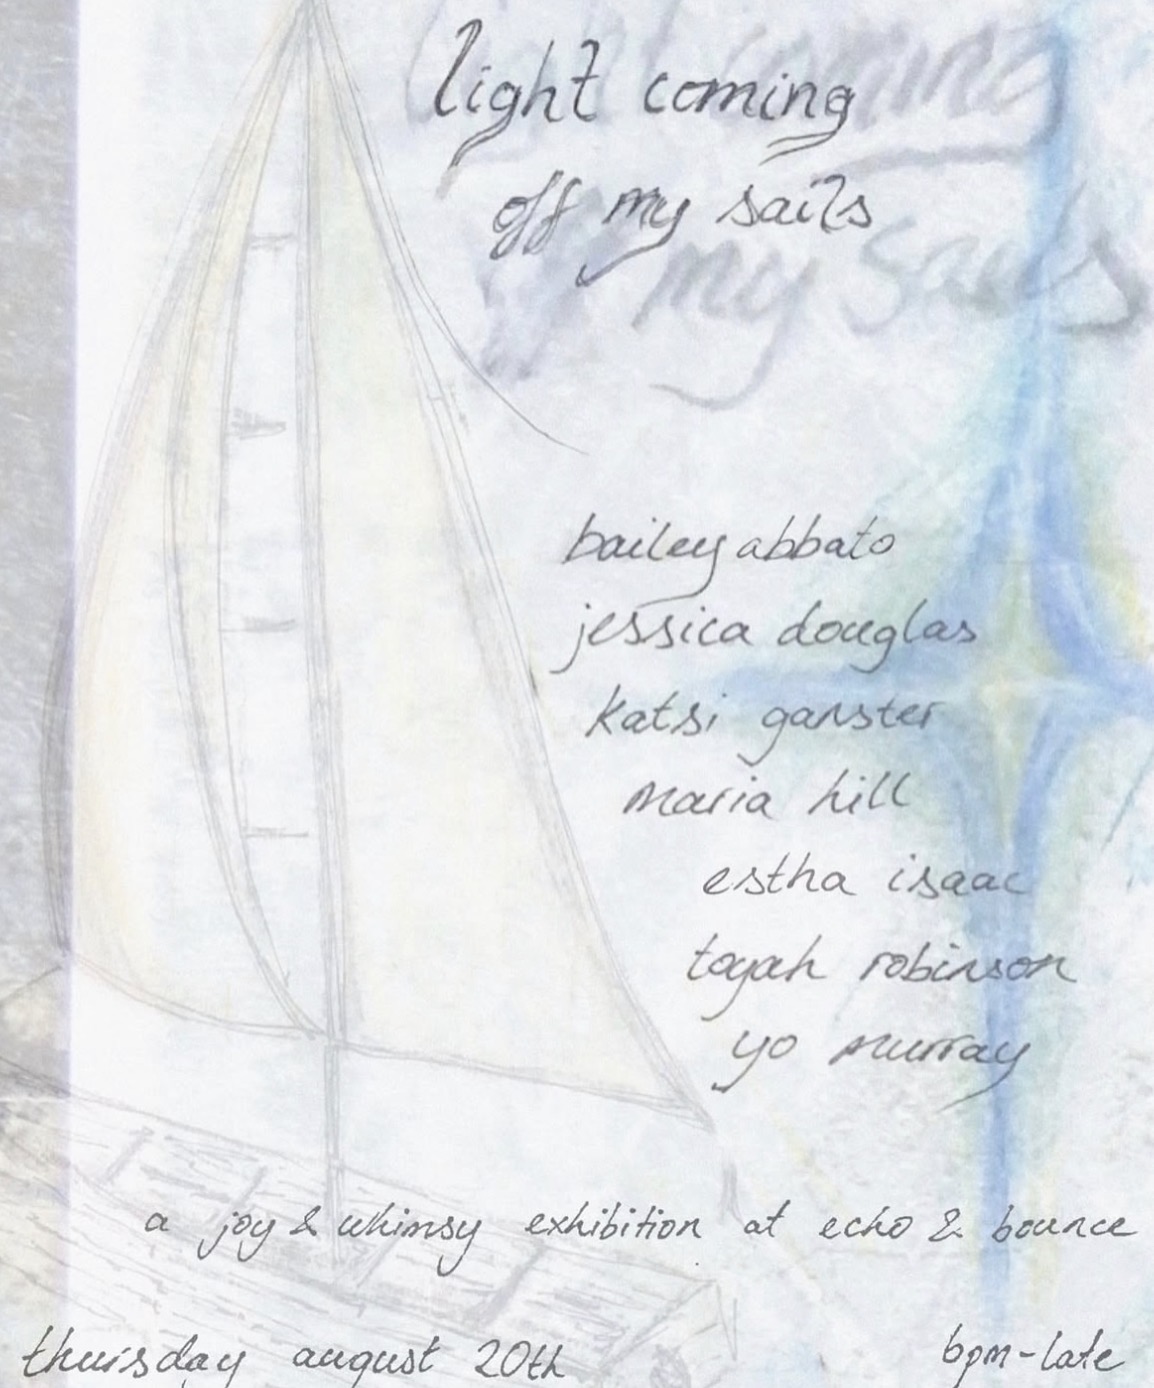 light coming
off my sails
bailey abbato
jessica douglas
katsi ganster
maria hill
estha isaac
toyah robinson
yo murray
a joy & whimsy exhibition at echo & bounce
thursday august 20th
6pm-late